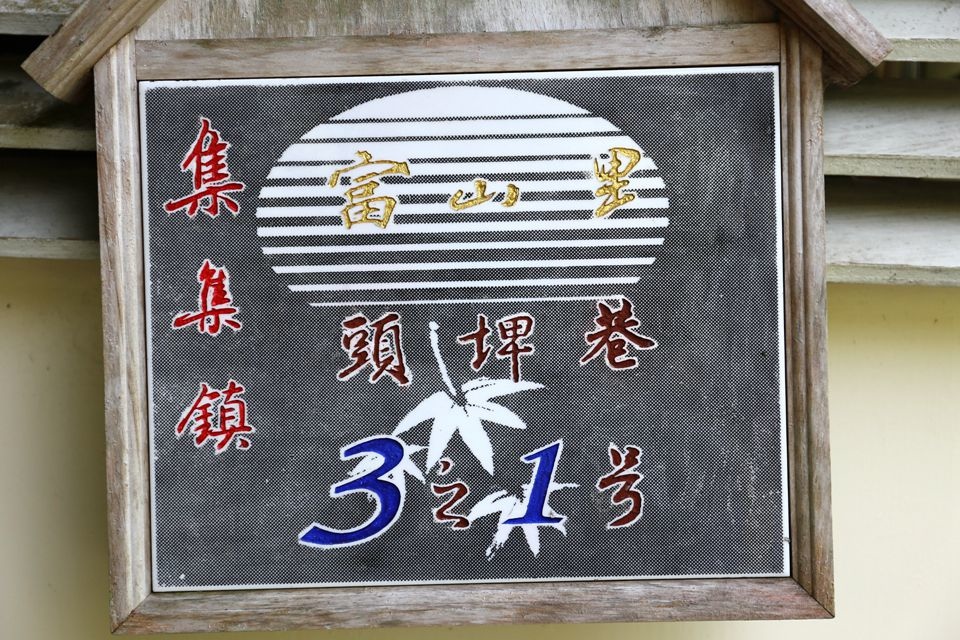 集集鎮
富山里
頭埤巷
3之1号